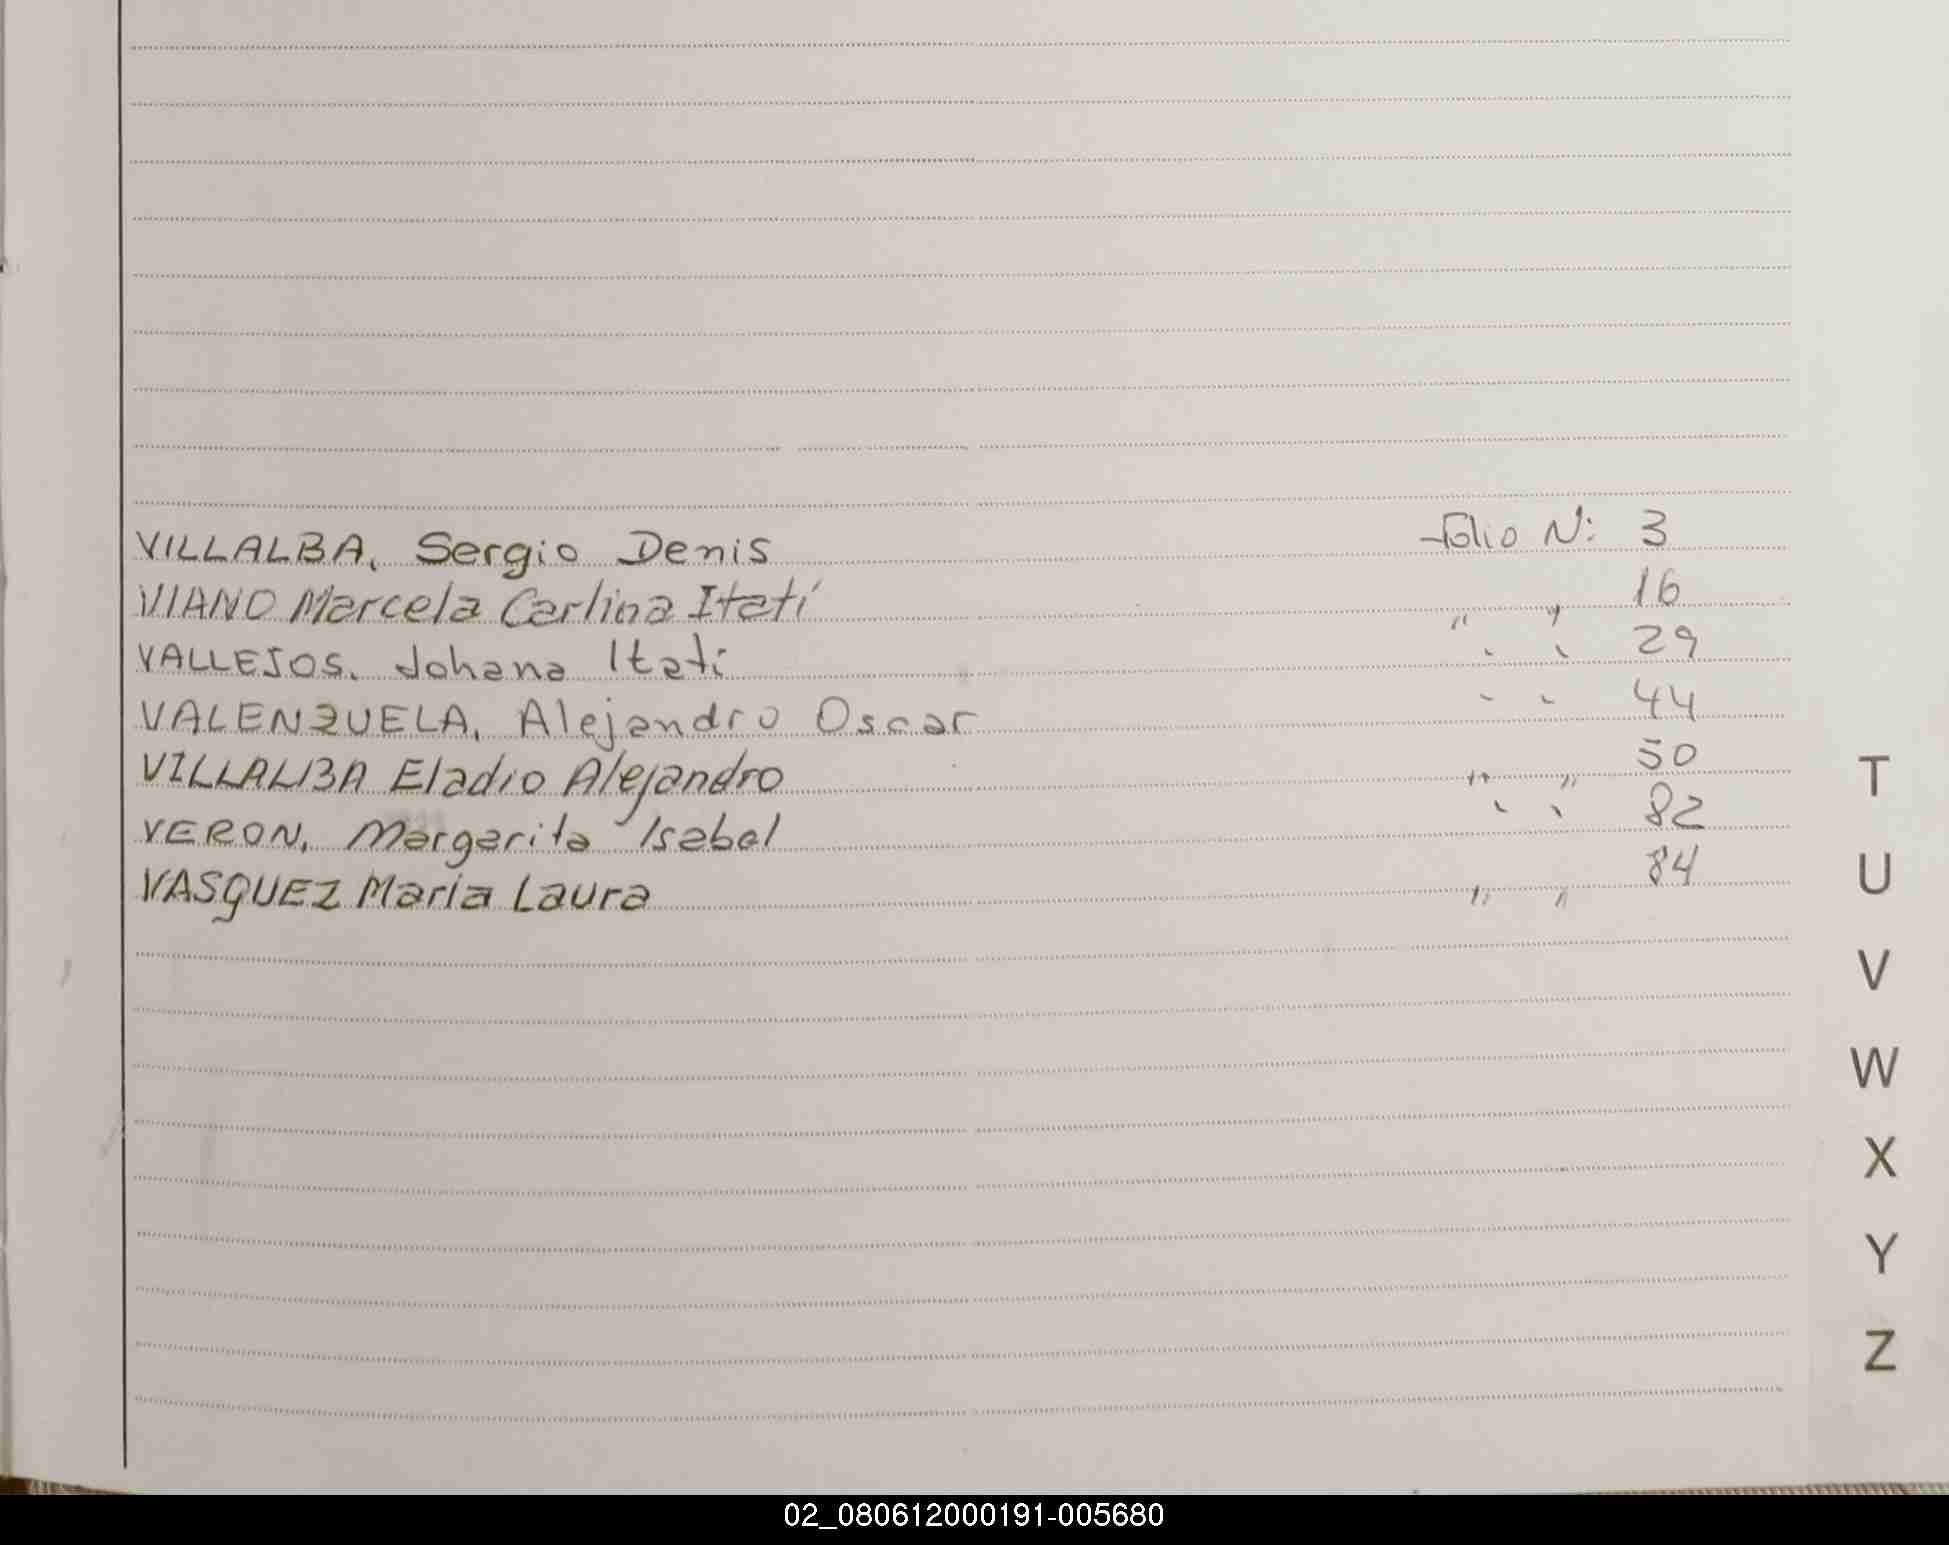 VILLALBA, Sergio Denis Folio N: 3
VIANO Marcela Carlina Itatí " " 16
VALLEJOS, Johana Itati " " 29
VALENZUELA, Alejandro Oscar " " 44
VILLALBA Eladio Alejandro " " 50
VERON, Margarita Isabel " " 82
VASQUEZ María Laura " " 84
T
U
V
W
X
Y
Z
02_080612000191-005680